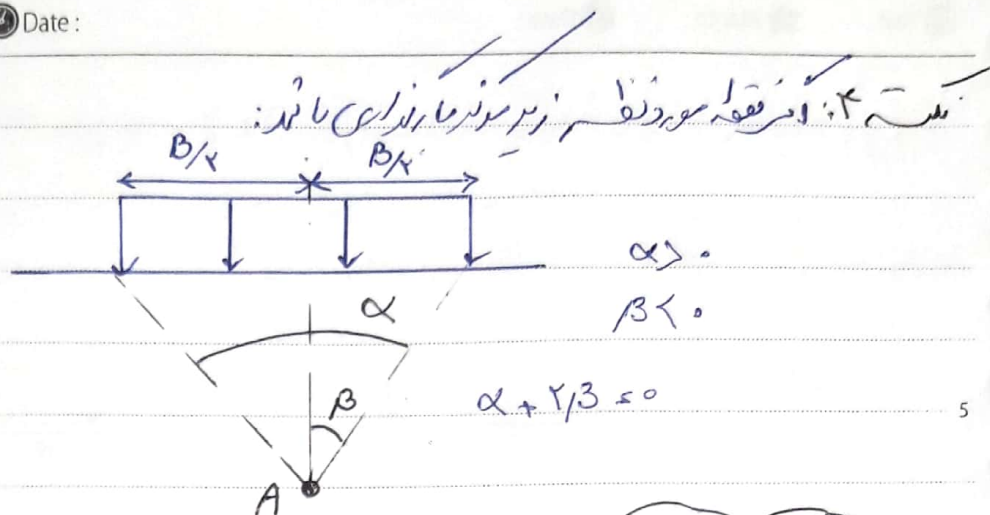 Date :
نکته ۴: اگر نقطه مورد نظر زیر مرکز بارگذاری باشد:
B/۲ B/۲
α > ۰
β < ۰
α
α + ۲β = ۰
β
5
A